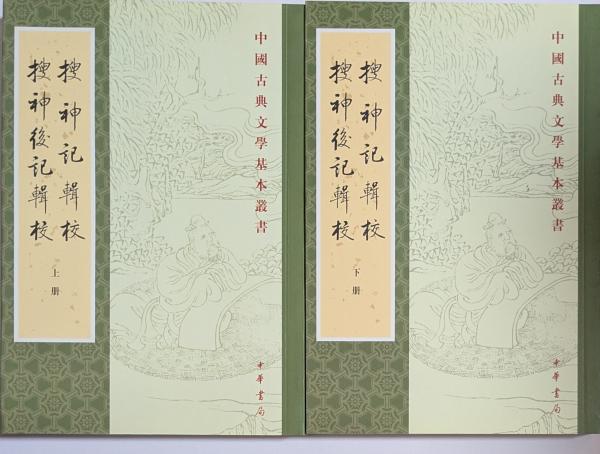 搜神記輯校
搜神後記輯校
上册
中國古典文學基本叢書
中華書局
搜神記輯校
搜神後記輯校
下册
中國古典文學基本叢書
中華書局